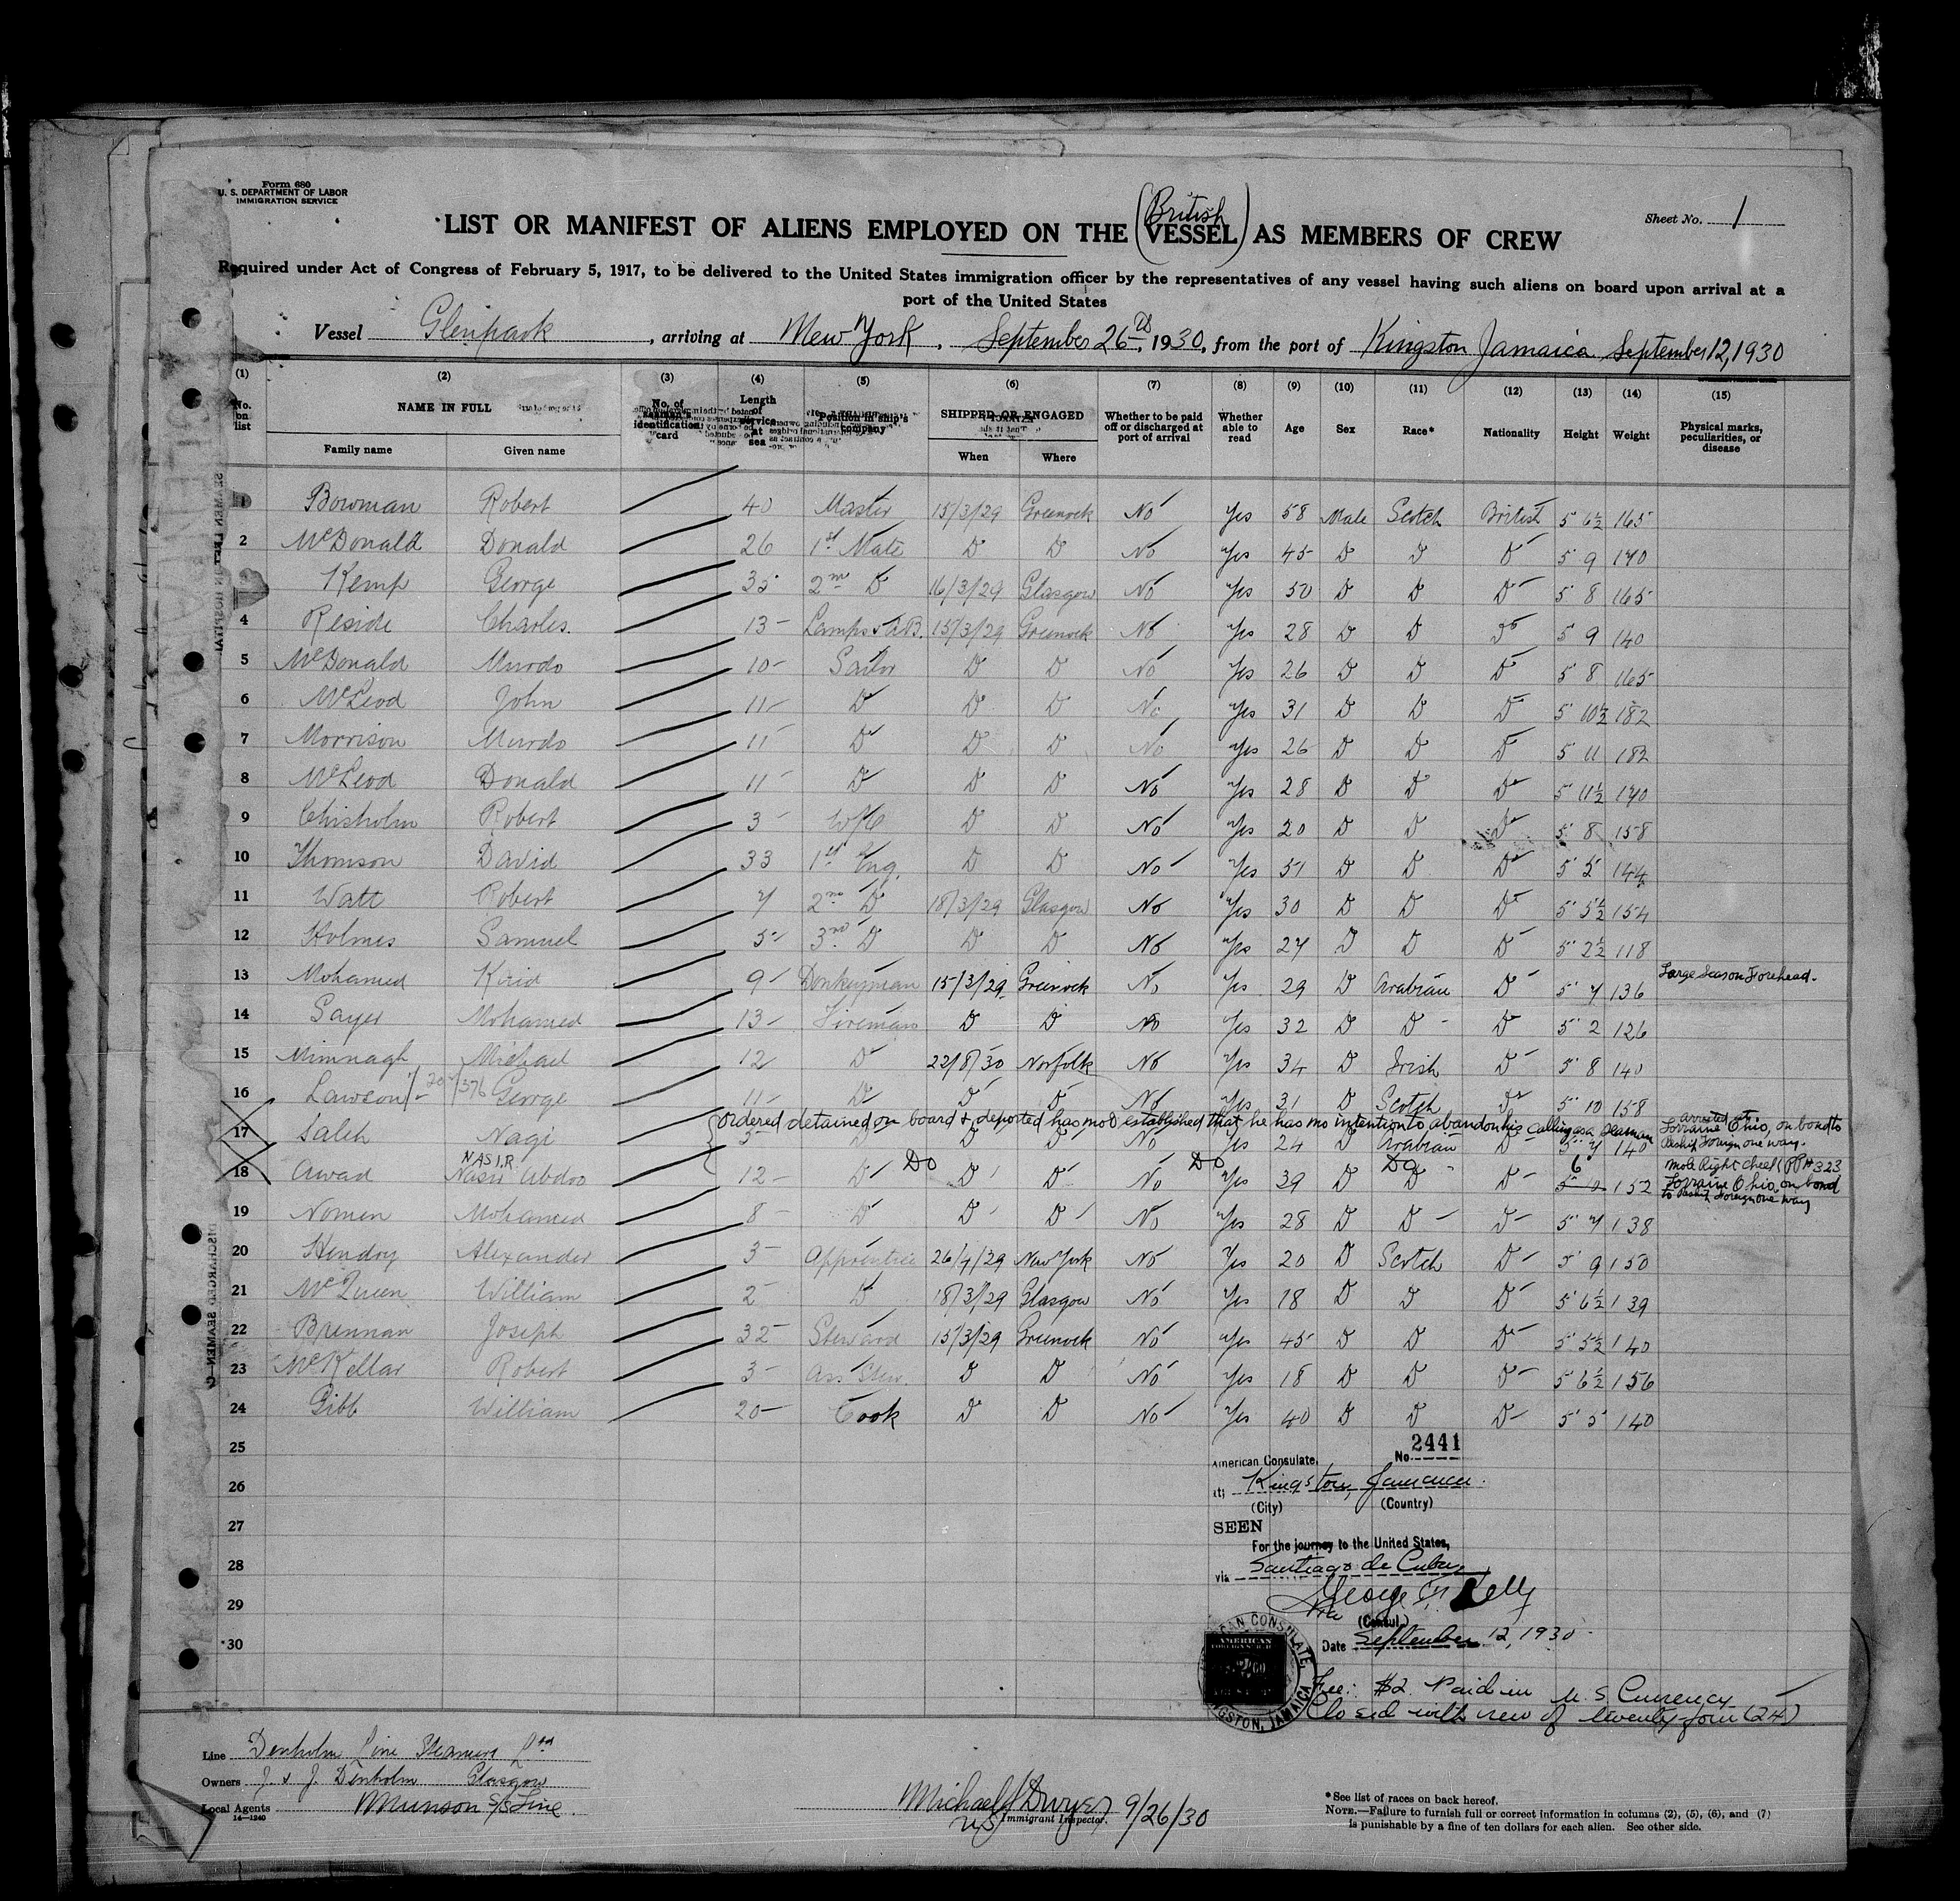 Form 680
U. S. DEPARTMENT OF LABOR
IMMIGRATION SERVICE
Sheet No. 1
LIST OR MANIFEST OF ALIENS EMPLOYED ON THE (British VESSEL) AS MEMBERS OF CREW
Required under Act of Congress of February 5, 1917, to be delivered to the United States immigration officer by the representatives of any vessel having such aliens on board upon arrival at a
port of the United States
Vessel Glenpark, arriving at New York, September 26th, 1930, from the port of Kingston Jamaica September 12, 1930
(1) (2) (3) (4) (5) (6) (7) (8) (9) (10) (11) (12) (13) (14) (15)
No. on list NAME IN FULL Family name Given name No. of seaman's identification card Length of service at sea Position in ship's company SHIPPED OR ENGAGED When Where Whether to be paid off or discharged at port of arrival Whether able to read Age Sex Race* Nationality Height Weight Physical marks, peculiarities, or disease
1 Bowman Robert 40 Master 15/3/29 Greenock No Yes 58 Male Scotch British 5 6½ 165
2 McDonald Donald 26 1st Mate D D No Yes 45 D D D 5 9 170
3 Kemp George 35 2nd D 16/3/29 Glasgow No Yes 50 D D D 5 8 165
4 Reside Charles. 13 Lamps & A.B. 15/3/29 Greenock No Yes 28 D D D 5 9 140
5 McDonald Murdo 10 Sailor D D No Yes 26 D D D 5 8 165
6 McLeod John 11 D D D No Yes 31 D D D 5 10½ 182
7 Morrison Murdo 11 D D D No Yes 26 D D D 5 11 182
8 McLeod Donald 11 D D D No Yes 28 D D D 5 11½ 170
9 Chisholm Robert 3 D D No Yes 20 D D D 5 8 158
10 Thomson David 33 1st Eng. D D No Yes 51 D D D 5 5 144
11 Watt Robert 7 2nd D 18/3/29 Glasgow No Yes 30 D D D 5 5½ 154
12 Holmes Samuel 5 3rd D D D No Yes 27 D D D 5 2½ 118
13 Mohamed Kirid 9 Donkeyman 15/3/29 Greenock No Yes 29 D Arabian D 5 7 136 Large Scar on Forehead.
14 Sayer Mohamed 13 Fireman D D No Yes 32 D D D 5 2 126
15 Mimnagh Michael 12 D 22/8/30 Norfolk No Yes 34 D Irish D 5 8 140
16 Lawson George 11 D D D No Yes 31 D Scotch D 5 10 158
{ordered detained on board & deported has not established that he has no intention to abandon his calling as a seaman arrested at Lorraine Ohio, on bond to Reship Foreign one way.
17 Saleh Nagi 5 D D D No Yes 24 D Arabian D 5 7 140
NASIR Do Do Do 6 Mole Right cheek
18 Awad Nasir Abdoo 12 D D D No Yes 39 D D D 5 0 152 Lorraine Ohio, on bond to Reship Foreign one way
19 Nomen Mohamed 8 D D D No Yes 28 D D D 5 7 138
20 Hendry Alexander 3 Apprentice 26/7/29 New York No Yes 20 D Scotch D 5 9 150
21 McQueen William 2 D 18/3/29 Glasgow No Yes 18 D D D 5 6½ 139
22 Brennan Joseph 32 Steward 15/3/29 Greenock No Yes 45 D D D 5 5½ 140
23 McKellar Robert 3 Ass Stew. D D No Yes 18 D D D 5 6½ 156
24 Gibb William 20 Cook D D No Yes 40 D D D 5 5 140
25
26
27
28
29
30
American Consulate, No. 2441
at Kingston, Jamaica.
(City) (Country)
SEEN
For the journey to the United States,
via Santiago de Cuba
George Kelly
(Consul.)
Date September 12, 1930
AMERICAN CONSULATE KINGSTON, JAMAICA
Fee: $2. Paid in U. S. Currency
Closed with crew of twenty-four (24)
Line Denholm Line Steamers Ltd
Owners J. & J. Denholm Glasgow
Local Agents Munson S/S Line.
14—1240
Michael J Dwyer 9/26/30
US Immigrant Inspector.
*See list of races on back hereof.
NOTE.—Failure to furnish full or correct information in columns (2), (5), (6), and (7)
is punishable by a fine of ten dollars for each alien. See other side.